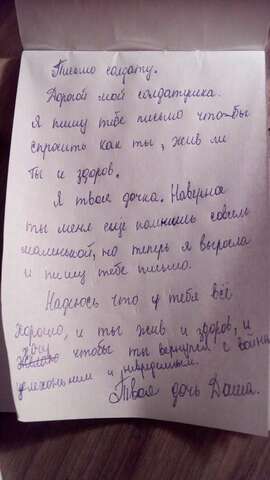 Письмо солдату.
Дорогой мой солдатушка.
Я пишу тебе письмо что-бы
спросить как ты, жив ли
ты и здоров.
Я твоя дочка. Наверное
ты меня еще помнишь совсем
маленькой, но теперь я выросла
и пишу тебе письмо.
Надеюсь что у тебя всё
хорошо, и ты жив и здоров, и
хочу чтобы ты вернулся с войны
и невридимым.
Твоя дочь Даша.